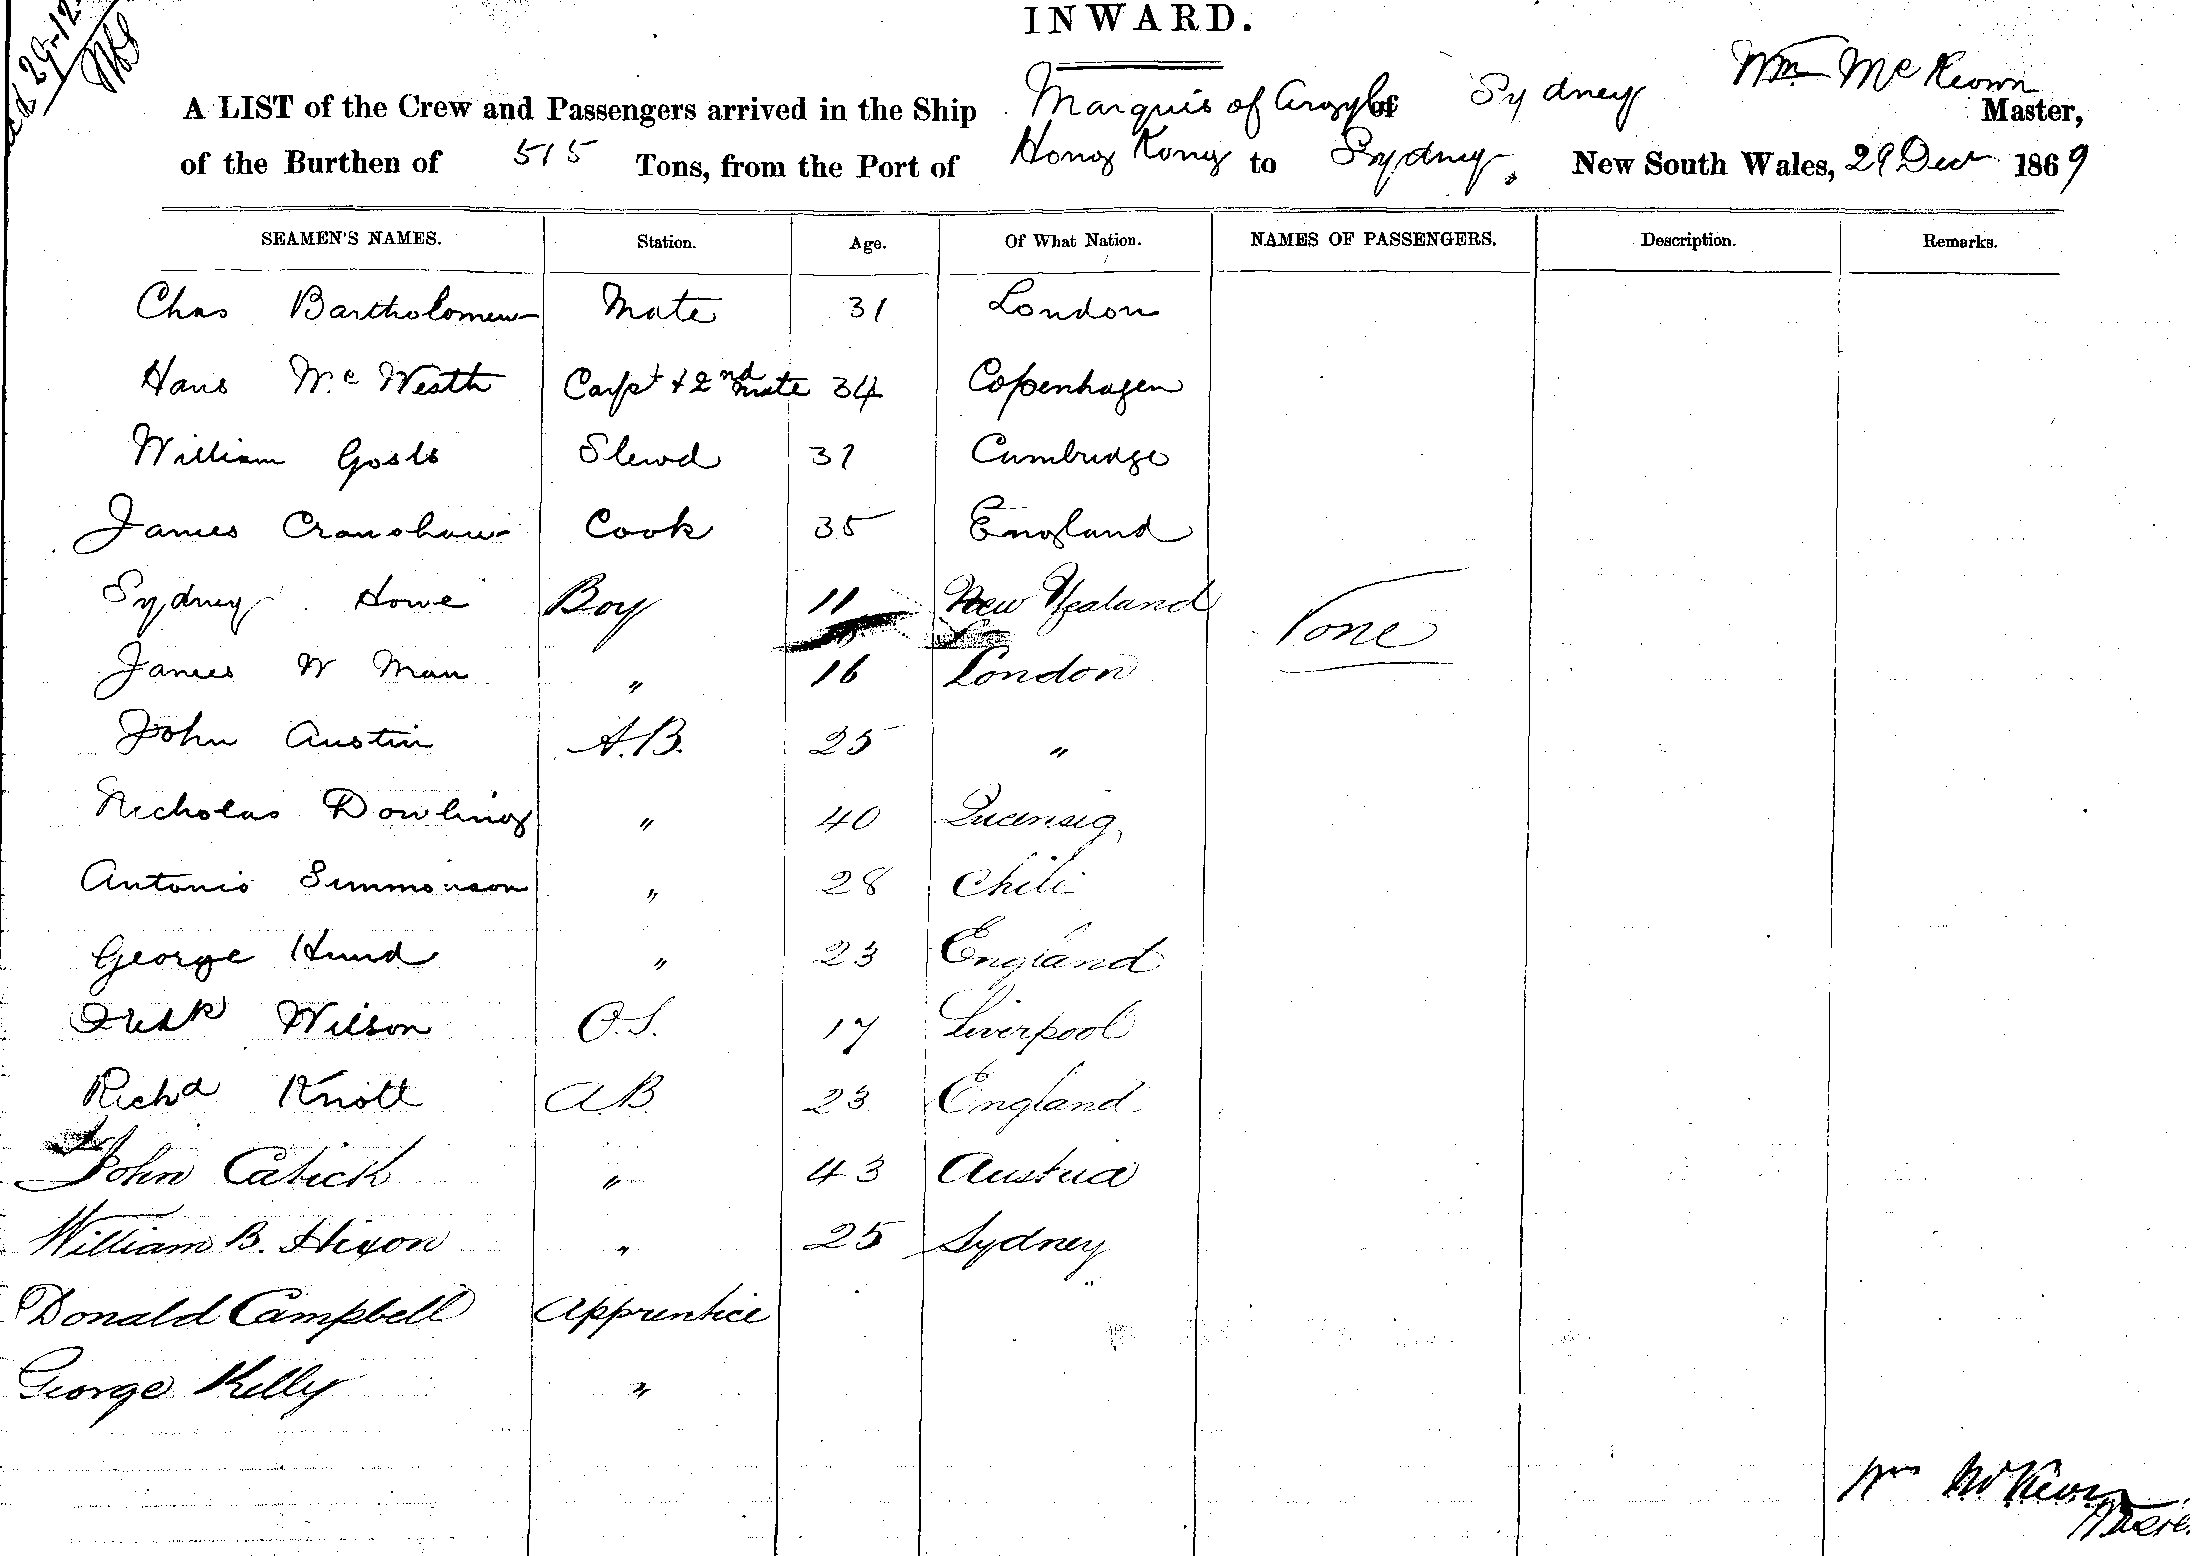 29-12-
INWARD.
A LIST of the Crew and Passengers arrived in the Ship Marquis of Argyle of Sydney Wm McKeown Master,
of the Burthen of 515 Tons, from the Port of Hong Kong to Sydney, New South Wales, 29 Decr 1869
SEAMEN'S NAMES. Station. Age. Of What Nation. NAMES OF PASSENGERS. Description. Remarks.
Chas Bartholomew Mate 31 London
Hans Carpt + 2nd Mate 34 Copenhagen
William Stewd 31 Cambridge
James Cranshaw Cook 35 England
Sydney Howe Boy 11 New Zealand
None
James W Man " 16 London
John Austin A.B. 25 "
Nicholas Dowling " 40 
Antonio Simmonson " 28 Chili
George Hund " 23 England
Fredk Wilson O.S. 17 Liverpool
Richd Knott AB 23 England
John Catick " 43 Austria
William B. Hixon " 25 Sydney
Donald Campbell Apprentice
George Kelly "
Wm McKeown
Master